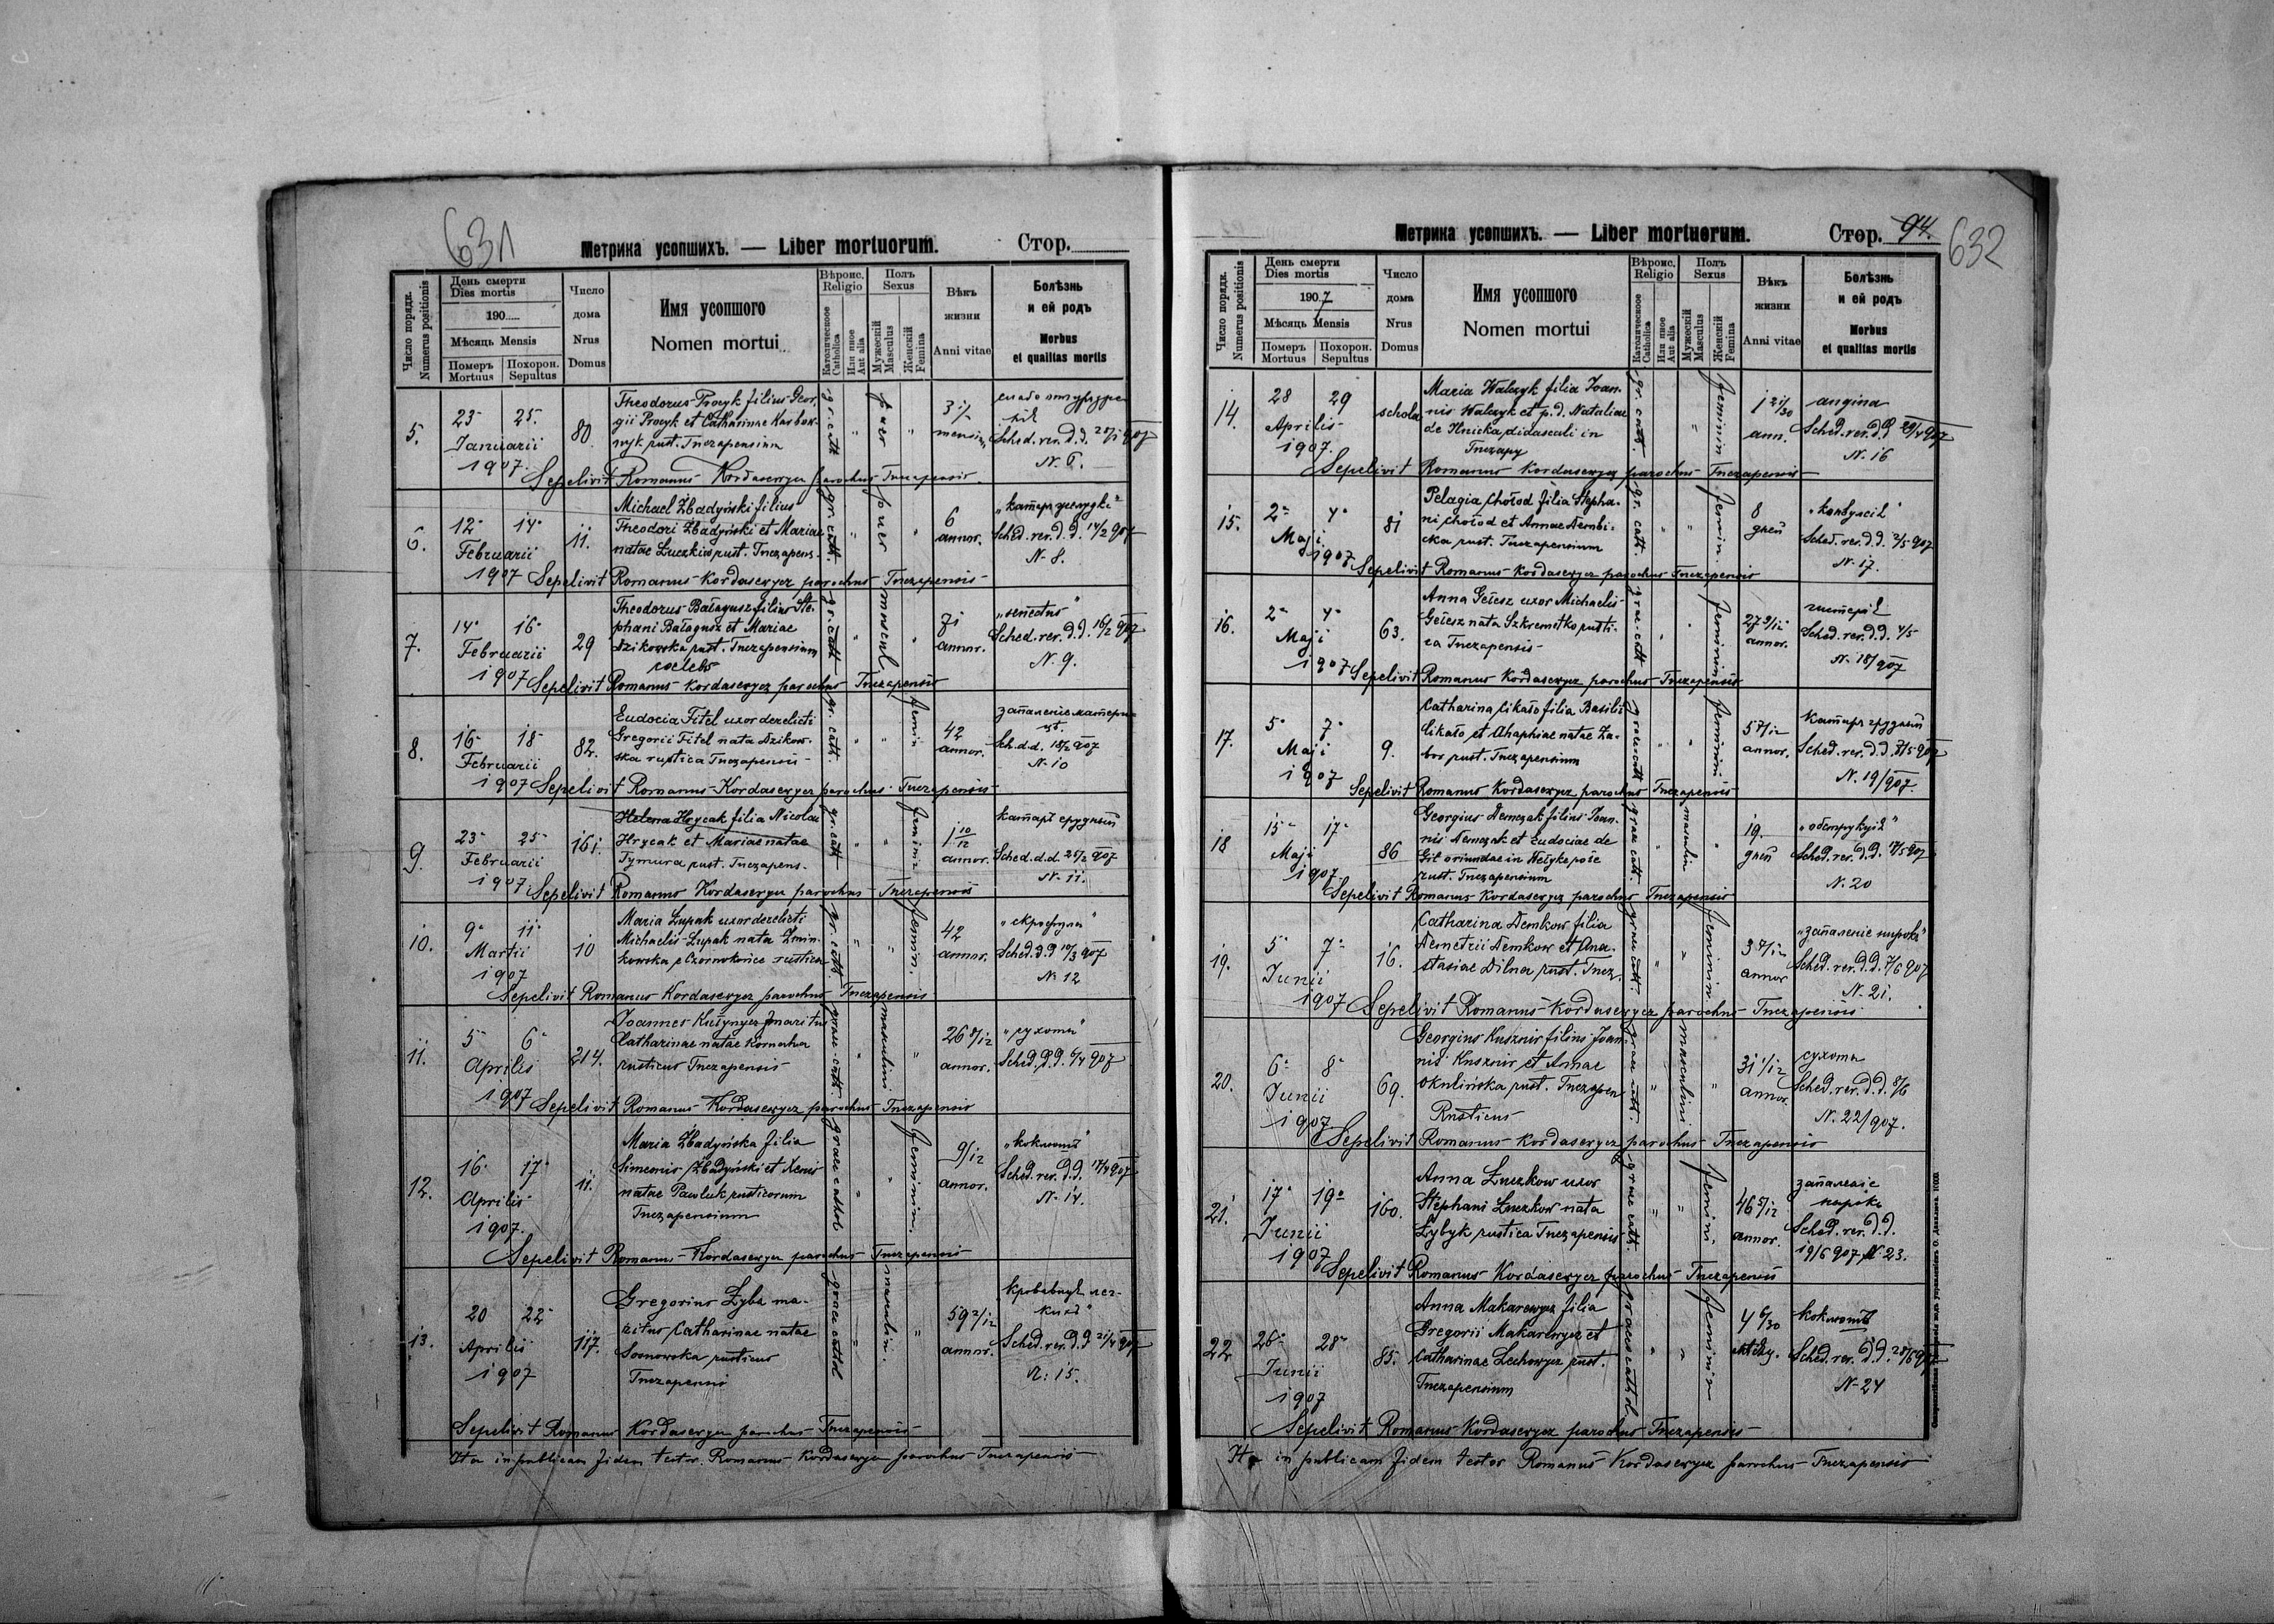 631
Метрика усопшихъ. — Liber mortuorum.
Стор.
Число порядк.
Numerus positionis
День смерти
Dies mortis
190
Мѣсяць Mensis
Померъ
Mortuus
Похорон.
Sepultus
Число
дома
Nrus
Domus
Имя усопшого
Nomen mortui
Вѣроис.
Religio
Католическое
Catholica
Или иное
Aut alia
Полъ
Sexus
Мужескій
Masculus
Женскій
Femina
Вѣкъ
жизни
Anni vitae
Болѣзнь
и ей родъ
Morbus
et qualitas mortis
5.
23 25
Januarii
1907.
80
Theodorus Procyk filius Geor.
gii Procyk et Catharinae Karbow-
nyk rust. Tnezapensium
gr. cath
puer
3
mensium
Sched. rev. d. d. 907
N. 6.
Sepelivit Romanus Kordasewycz parochus Tnezapensis
6.
12 14
Februarii
1907
11.
Michael Zbadyński filius
Theodori Zbadyński et Mariae
natae Luczkiw rust. Tnezapens.
gr. cath.
puer
6
annor.
Sched. rev. d. d. 14/2 907
N. 8.
Sepelivit Romanus Kordasewycz parochus Tnezapensis
7.
14 16
Februarii
1907
29
Theodorus Bałagusz filius Ste-
phani Bałagusz et Mariae
Dzikowska rust. Tnezapensium
coelebs
gr. cath
mascul.
71
annor.
"senectus"
Sched. rev. d. d. 16/2 907
N. 9.
Sepelivit Romanus Kordasewycz parochus Tnezapensis
8.
16 18
Februarii
1907
82.
Eudocia Titel uxor derelicti
Gregorii Titel nata Dzikow-
ska rustica Tnezapensis
gr. cath.
femin
42
annor.
Sch. d. d. 18/2 907
N. 10
Sepelivit Romanus Kordasewycz parochus Tnezapensis
9.
23 25
Februarii
1907
161.
Helena Hrycak filia Nicolai
Hrycak et Mariae natae
Tymura rust. Tnezapens.
gr. cath
femin.
1 10/12
annor.
катарг грудный
Sched. d. d. 25/2 907
N. 11.
Sepelivit Romanus Kordasewycz parochus Tnezapensis
10.
9 11
Martii
1907
10
Maria Łupak uxor derelicti
Michaelis Łupak nata Zmin-
kowska e Czornokońce rustica
gr. cath
femin.
42
annor.
"скрофули"
Sched. d. d 907
N. 12
Sepelivit Romanus Kordasewycz parochus Tnezapensis
11.
5 6
Aprilis
1907
214.
Joannes Kużynycz maritus
Catharinae natae Kornaha
rusticus Tnezapensis
graec. cath
masculini
26 8/12
annor.
"сухоты"
Sched. d. d. 6/4 907
Sepelivit Romanus Kordasewycz parochus Tnezapensis
12.
16 17
Aprilis
1907.
11.
Maria Zbadyńska filia
Simeonis Zbadyński et Xenis
natae Pawluk rusticorum
Tnezapensium
graec cathol
feminin.
9/12
annor.
"коклюшъ"
Sched. rev. d. d. 17/4 907
N. 14.
Sepelivit Romanus Kordasewycz parochus Tnezapensis
13.
20 22
Aprilis
1907
117.
Gregorius Zyba ma-
ritus Catharinae natae
Sosnowska rusticus
Tnezapensis
graec cathol
masculin.
59 2/12
annor.
Sched. rev. d. d 21/4 907
N: 15.
Sepelivit Romanus Kordasewycz parochus Tnezapensis
Ita in publicam fidem testor. Romanus Kordasewycz parochus Tnezapensis
Метрика усопшихъ. — Liber mortuorum.
Стор. 94.
632
Число порядк.
Numerus positionis
День смерти
Dies mortis
1907
Мѣсяць Mensis
Померъ
Mortuus
Похорон.
Sepultus
Число
дома
Nrus
Domus
Имя усопшого
Nomen mortui
Вѣроис.
Religio
Католическоое
Catholica
Или иное
Aut alia
Полъ
Sexus
Мужескій
Masculus
Женскій
Femina
Вѣкъ
жизни
Anni vitae
Болѣзнь
и ей родъ
Morbus
et qualitas mortis
14.
28 29
Aprilis
1907.
schola
Maria Walczyk filia Joan-
nis Walczyk et p. d. Nataliae
de Hnicka, didascali in
Tnezapy
gr. cath.
feminin
1 21/30
ann.
angina
Sched. rev. d. d 29/4 907
N. 16
Sepelivit Romanus Kordasewycz parochus Tnezapensis
15.
2 4
Maji
1907
81
Pelagia Chołod filia Stepha-
ni Chołod et Annae Dembi-
cka rust. Tnezapensium
gr. cath.
femin.
8
дней
"конвульсіѣ"
Sched. rev. d. d. 907
N. 17.
Sepelivit Romanus Kordasewycz parochus Tnezapensis
16.
2 4
Maji
1907
63.
Anna Geiesz uxor Michaelis
Geiesz nata Szkremetko rusti-
ca Tnezapensis
graec. cath
feminin
27 9/12
annor.
Sched. rev. d. d. 4/5
N. 18/907
Sepelivit Romanus Kordasewycz parochus Tnezapensis
17.
5 7
Maji
1907
9.
Catharina Cikało filia Basilii
Cikało et Ahaphiae natae Za-
bor rust. Tnezapensium
graec cath
feminini
5 7/12
annor.
катарг грудный
Sched. rev. d. d. 7/5 907
N. 19/907.
Sepelivit Romanus Kordasewycz parochus Tnezapensis
18
15 17
Maji
1907.
86
Georgius Demczak filius Joan-
nis Demczak et Eudociae de
Git oriundae in Wełyke pole
rust. Tnezapensium
graec cath.
masculin
19.
дней
"обструкція"
Sched. rev. d. d. 17/5 907
N. 20
Sepelivit Romanus Kordasewycz parochus Tnezapensis
19.
5 7
Junii
1907
16.
Catharina Demkow filia
Demetrii Demkow et Ana-
stasiae Dilna rust. Tnez.
graec cath.
feminin
3
annor
"запаленіе нырокъ"
Sched. rev. d. d. 7/6 907
N. 21.
Sepelivit Romanus Kordasewycz parochus Tnezapensis
20.
6 8
Junii
1907
69.
Georgius Kusznir filius Joan-
nis Kusznir et Annae
Okulińska rust. Tnezapen
Rusticus
graec cath.
masculini
31 1/12
annor.
сухоты
Sched. rev. d. d. 8/6
N. 22/907.
Sepelivit Romanus Kordasewycz parochus Tnezapensis
21.
17 19
Junii
1907
160.
Anna Łuczkow uxor
Stephani Łuczkow nata
Zybyk rustica Tnezapensis
graec cath.
feminin
46 5/12
annor.
запаленіе
нырокъ
Sched. rev. d. d.
19/6 907 N 23.
Sepelivit Romanus Kordasewycz parochus Tnezapensis
22
26 28
Junii
1907
85.
Anna Makarewycz filia
Gregorii Makarewycz et
Catharinae Lechowycz rust.
Tnezapensium
graec cathol
feminin
4 6/30
коклюшъ
Sched. rev. d. d. 28/6 907
N. 24
Sepelivit Romanus Kordasewycz parochus Tnezapensis
Ita in publicam fidem testor Romanus Kordasewycz parochus Tnezapensis